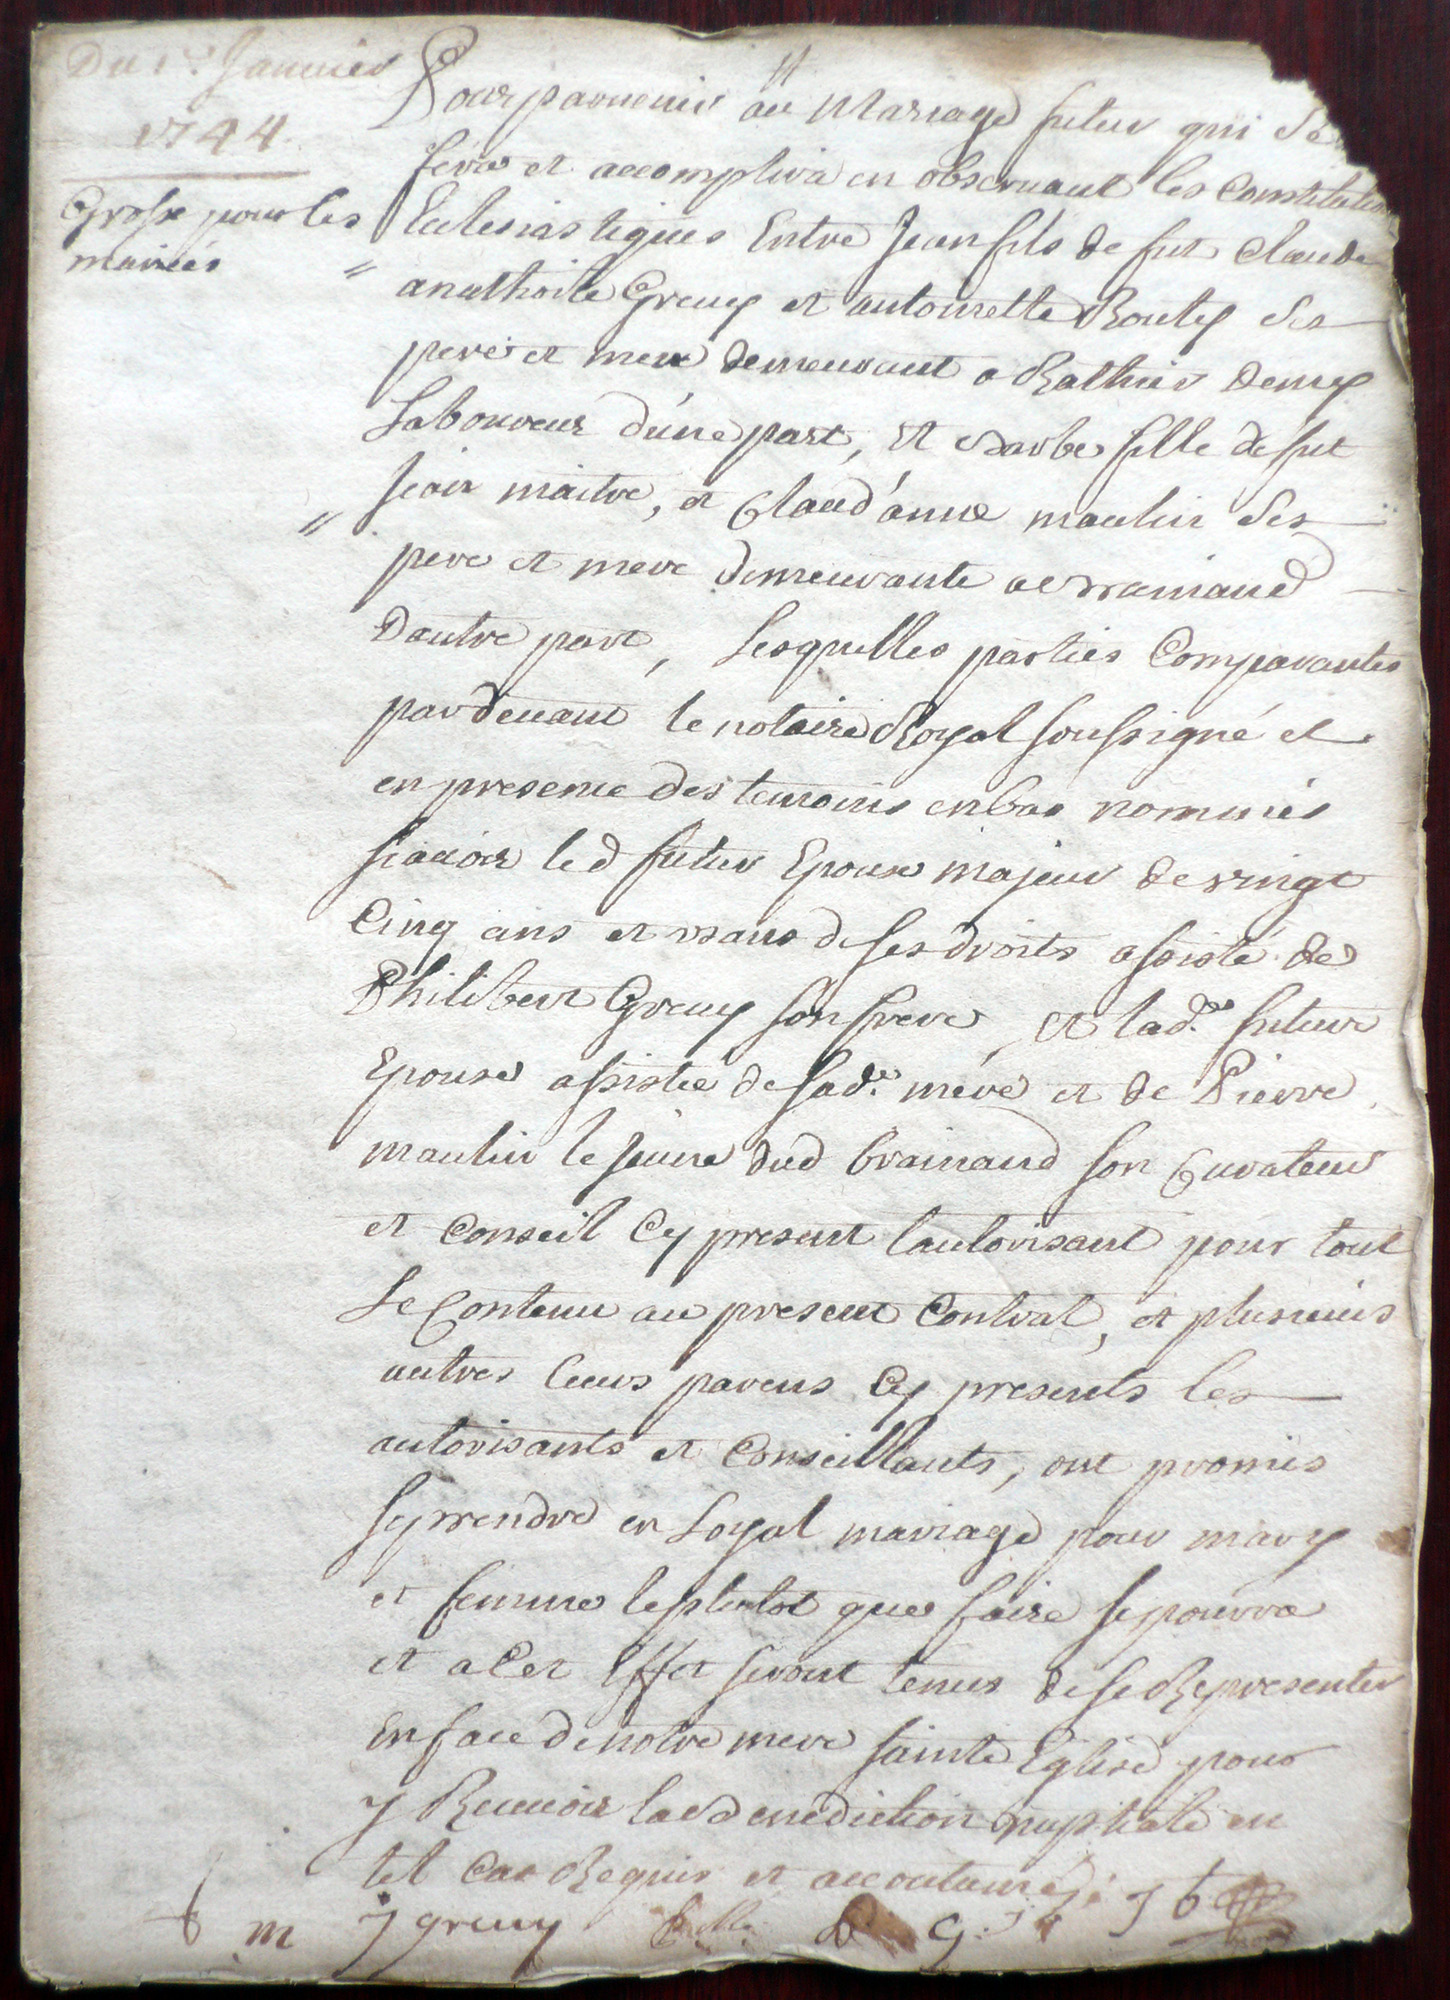 Du 1.er Janvier
1744.
Grosse pour les
mariés
Pour parvenir au Mariage futur qui se
fera et accomplira en observant les Constitution
Eclesiastiques Entre Jean fils de fut Claude
anathoile Greuy et antoinette Routy ses
pere et mere demeurant a Rathier demy
Laboureur d'une part, et Barbe fille de fut
Jean maitre, et Claud'anne maulin ses
pere et mere demeurante a Brainand
Dautre part, Lesquelles parties Comparantes
pardevant le notaire Royal soussigné et
en presence des temoins enbas nommés
scavoir led futur Epoux majeur de vingt
Cinq ans et usans de ses droits assisté de
Philibert Greuy son frere, et lad.e future
Epouse assistée de sad.e mere et de Pierre
maulin le jeune dud brainand son Curateur
et Conseil Cy present lautorisant pour tout
Le Contenu au present Contrat, et plusieurs
autres leurs parens Cy presents les
autorisants et Conseillants, ont promis
se prendre en Loyal mariage pour mary
et femme le plutot que faire se pourra
et a Cet Effet seront tenus de se Representer
En face de notre mere sainte Eglise pour
y Recevoir la Benediction nuptiale en
tel Cas Requis et accoutumé
m J greuy